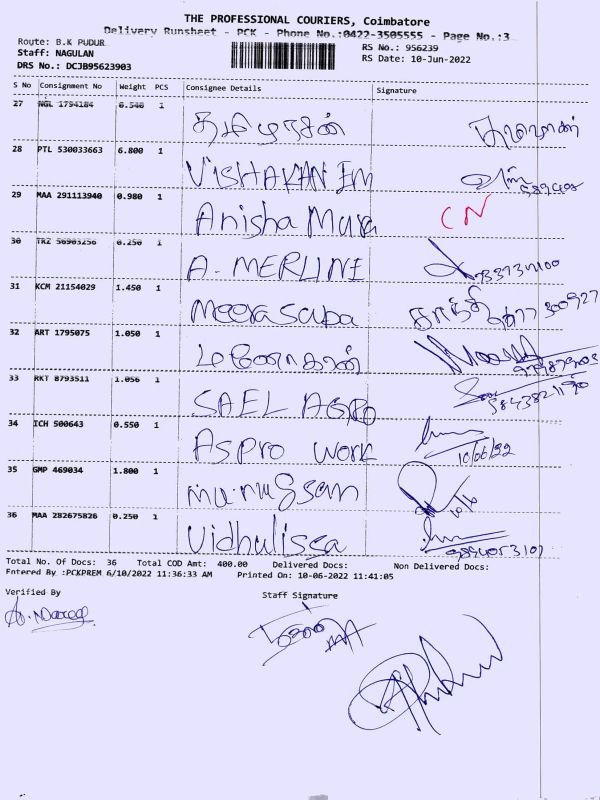 THE PROFESSIONAL COURIERS, Coimbatore
Delivery Runsheet - PCK - Phone No.:0422-3505555 - Page No.:3
Route: B.K PUDUR RS No.: 956239
Staff: NAGULAN RS Date: 10-Jun-2022
DRS No.: DCJB95623903
S No Consignment No Weight PCS Consignee Details Signature
27 NGL 1794184 0.540 1 தமிழரசன்
28 PTL 530033663 6.800 1 VISHAKAN EM
29 MAA 291113940 0.980 1 Anisha CN
30 TRZ 56903256 0.250 1 A. MERLINE
31 KCM 21154029 1.450 1 Meera Suba
32 ART 1795075 1.050 1
33 RKT 8793511 1.056 1 SAEL AGRO 9843821190
34 ICH 500643 0.550 1 Aspro work 10/06/22
35 GMP 469034 1.800 1 murugesan
36 MAA 282675826 0.250 1 Vidhulissa
Total No. Of Docs: 36 Total COD Amt: 400.00 Delivered Docs: Non Delivered Docs:
Entered By :PCKPREM 6/10/2022 11:36:33 AM Printed On: 10-06-2022 11:41:05
Verified By Staff Signature